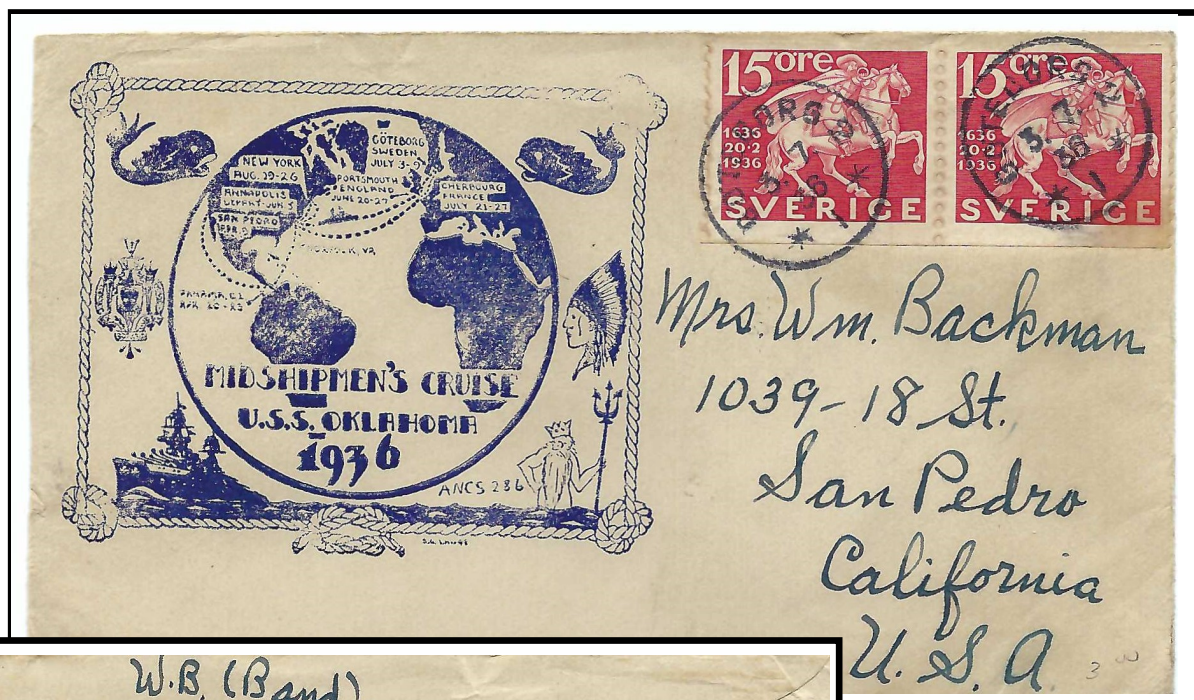 NEW YORK
AUG. 19-26
ANNAPOLIS
DEPART-JUN 5
SAN PEDRO
GÖTEBORG
SWEDEN
JULY 3-9
PORTSMOUTH
ENGLAND
JUNE 20-27
CHERBOURG
FRANCE
JULY 21-27
NORFOLK, VA,
MIDSHIPMEN'S CRUISE
U.S.S. OKLAHOMA
1936
ANCS 286
15 öre
1636
20·2
1936
SVERIGE
15 öre
1636
20·2
1936
SVERIGE
Mrs. Wm. Backman
1039-18 St.
San Pedro
California
U.S.A.
W.B. (Band)